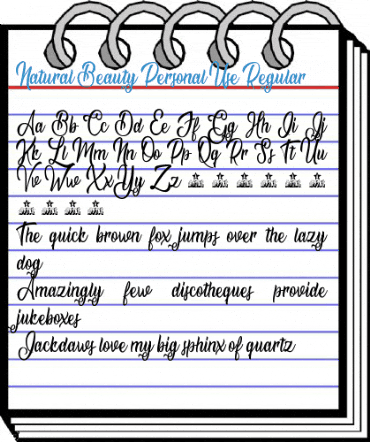 Natural Beauty Personal Use Regular
Aa Bb Cc Dd Ee Ff Gg Hh Ii Jj
Kk Ll Mm Nn Oo Pp Qq Rr Ss Tt Uu
Vv Ww Xx Yy Zz
The quick brown fox jumps over the lazy
dog
Amazingly few discotheques provide
jukeboxes
Jackdaws love my big sphinx of quartz